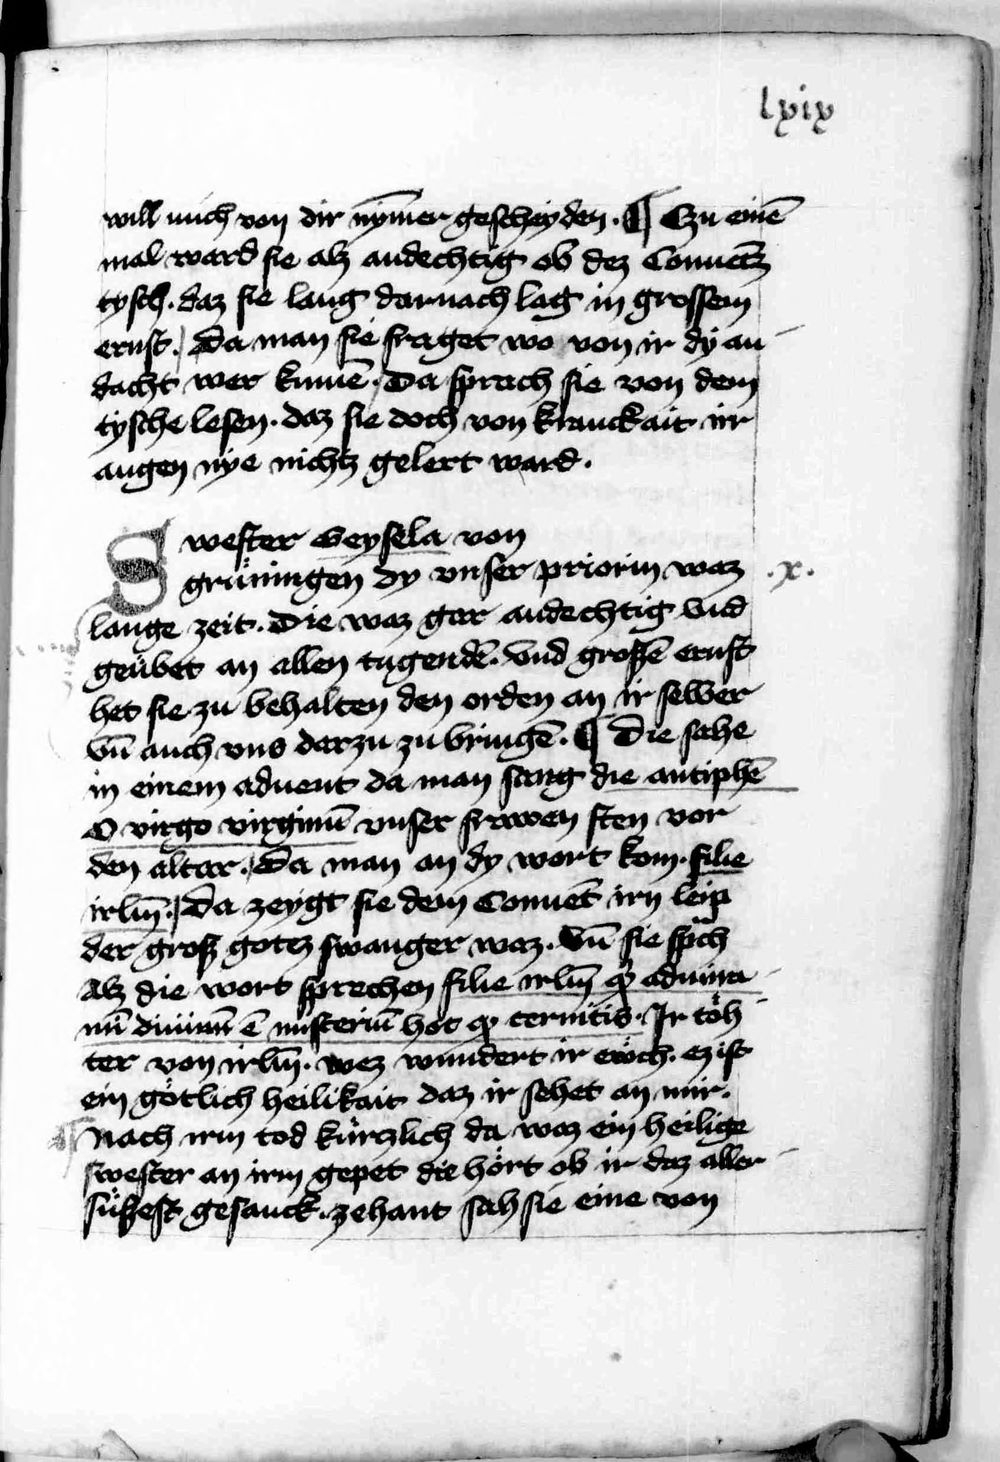 lxix
will mich von dir nym̄er gescheyden. ¶ Czu einē
mal ward sie alz andechtig ob dez Conuetz̄
tysch. daz sie lang darnach lag in grossem
ernst. Da man sie fraget wo von ir dy an
dacht wer kumē. Da sprach sie von dem
tysche lesen. daz sie doch von kranckait irr
augen nye nichtz gelert ward.
Swester Geysela von
grüningen dy vnser priorin waz
.x.
lange zeit. Die waz gar andechtig vnd
geübet an allen tugendē. vnd großē ernst
het sie zu behalten den orden an ir selber
vn̄ auch vns darzu zu bringē. ¶ Die sahe
in einem aduent da man sang die antiphē
O virgo virginū vnser frawen sten vor
den altar. Da man an dy wort kom. filie
irlm̄. Da zeygt sie dem Conuēt irn leip
der groß gotez swanger waz. Vn̄ sie spͣch
Alz die wort sprechen filie irlm̄ qͥ admira
mī diuinū ē misteriū hoc qͩ cernitis. Ir töh
ter von irlm̄. wez wundert ir ewch. ez ist
ein götlich heilikait daz ir sehet an mir.
¶ Nach irm tod kürczlich da waz ein heilige
swester an irm gepet die hört ob ir daz aller
süßest gesanck. zehant sah sie eine von